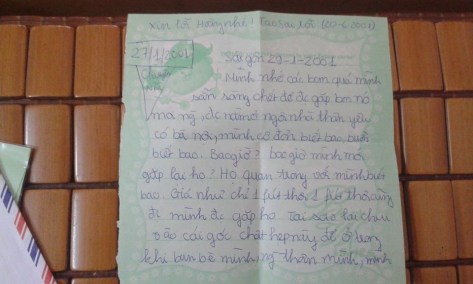 Xin lỗi Hoàng nhé!
27/1/2001
Sài gòn 29-1-2001
Mình nhớ các bạn quá mình
sẵn sàng chết để đc gặp bọn nó
có bà nội, mình cô đơn biết bao, buồn
biết bao. Bao giờ? bao giờ mình mới
gặp lại họ? Họ quan trọng với mình biết
bao. Giá như chỉ 1 phút thôi, 1 phút thôi cũng
đc mình đc gặp họ. Tại sao lại chui
vào cái góc chật hẹp này để ở trong
khi bạn bè mình, người thân mình, mình